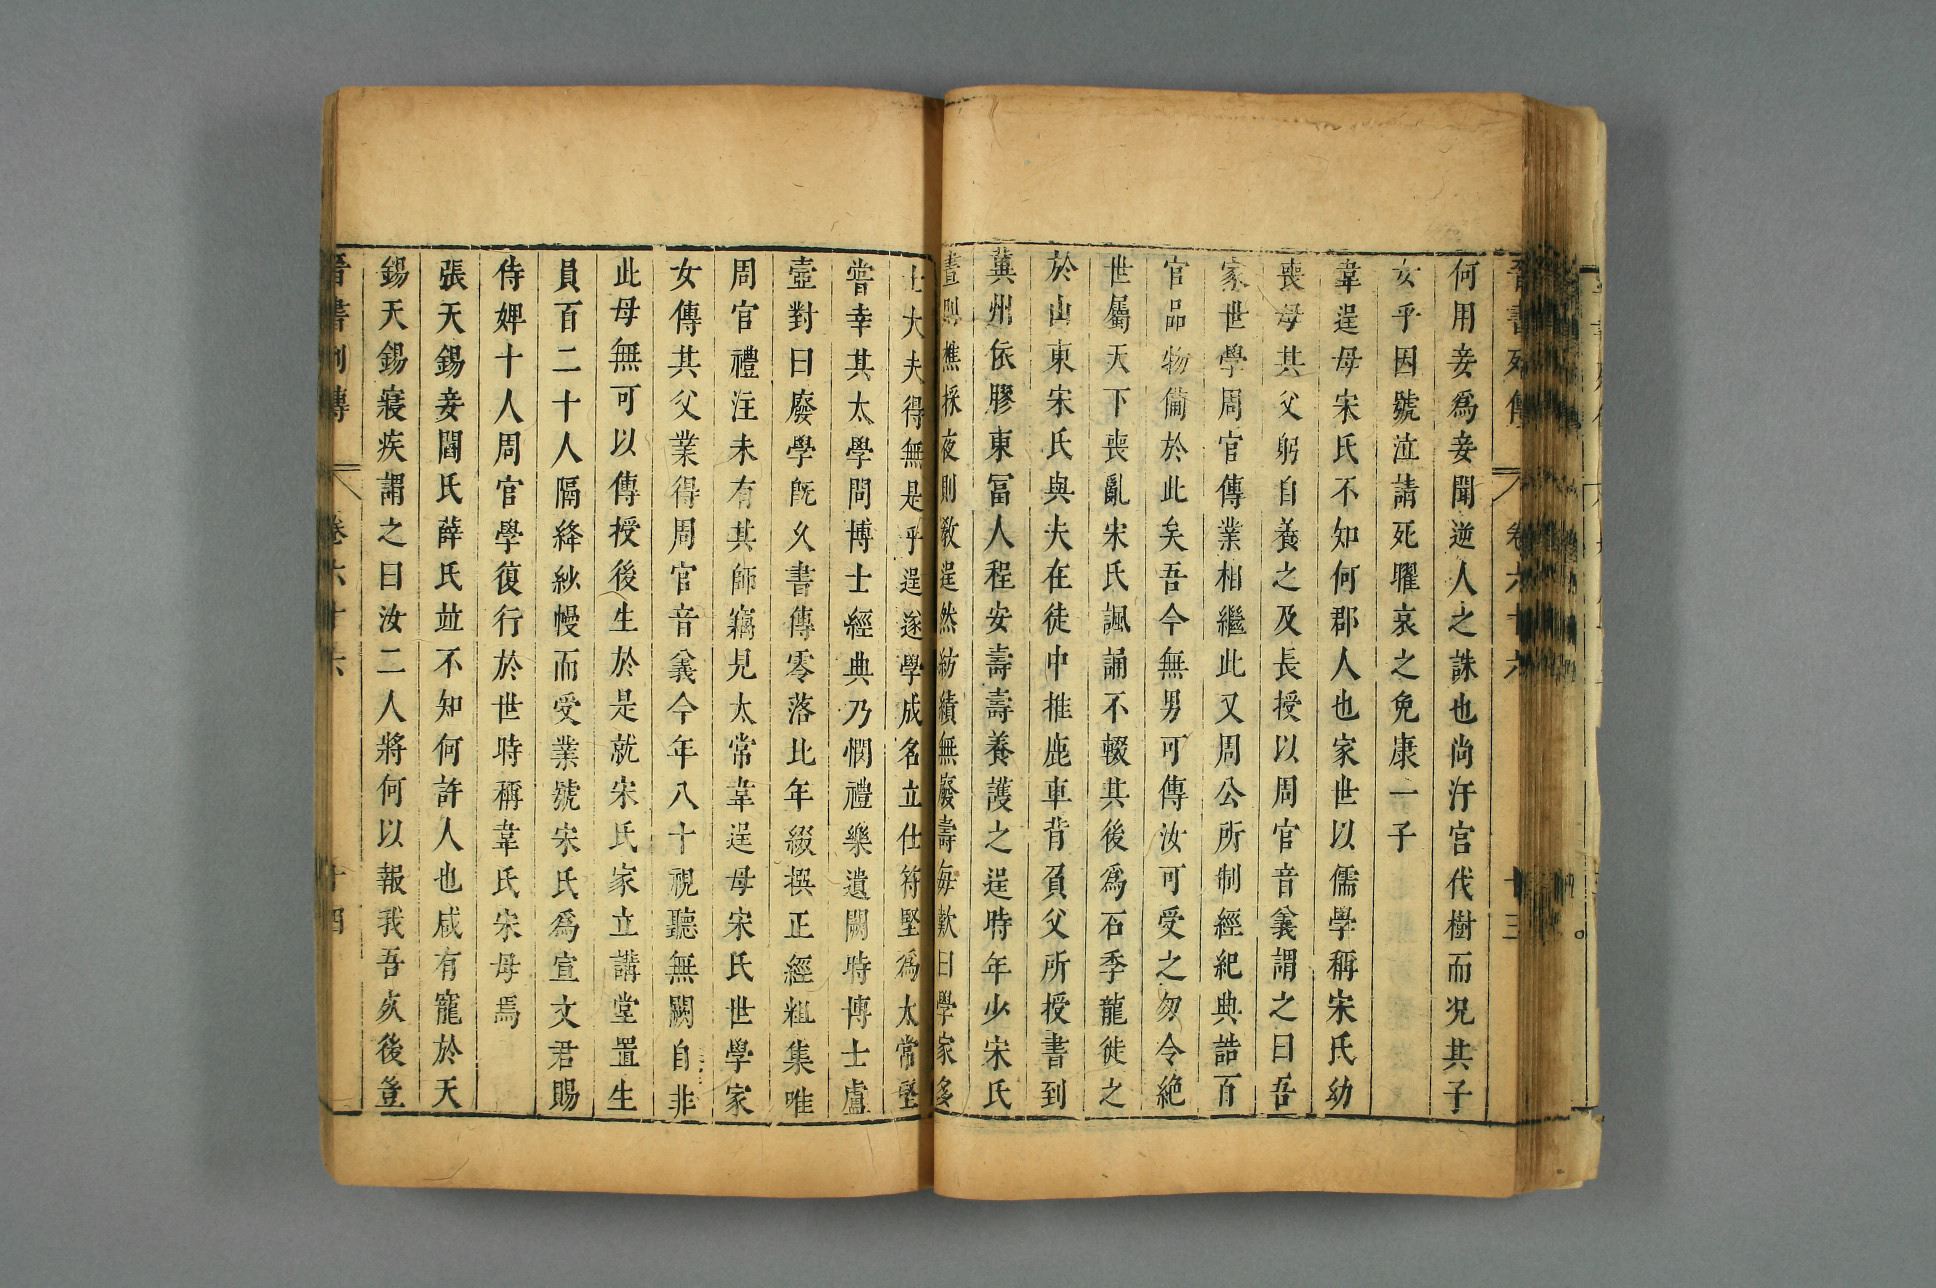 晉書列傳 卷六十六 十三
何用妾爲妾聞逆人之誅也尚汙宮伐樹而况其子
女乎因號泣請死曜哀之免康一子
韋逞母宋氏不知何郡人也家世以儒學稱宋氏幼
喪母其父躬自養之及長授以周官音義謂之曰吾
家世學周官傳業相繼此又周公所制經紀典誥百
官品物俻於此矣吾今無男可傳汝可受之勿令絶
世屬天下喪亂宋氏諷誦不輟其後爲石季龍徙之
於山東宋氏與夫在徒中推鹿車背負父所授書到
冀州依膠東冨人程安壽壽養護之逞時年少宋氏
晝則樵採夜則敎逞然紡績無廢壽每歎曰學家多
士大夫得無是乎逞遂學成名立仕符堅爲太常堅
甞幸其太學問博士經典乃憫禮樂遺闕時博士盧
壼對曰廢學旣久書傳零落比年綴撰正經粗集唯
周官禮注未有其師竊見太常韋逞母宋氏世學家
女傳其父業得周官音義今年八十視聽無闕自非
此母無可以傳授後生於是就宋氏家立講堂置生
員百二十人隔絳紗幔而受業號宋氏爲宣文君賜
侍婢十人周官學復行於世時稱韋氏宋母焉
張天錫妾閻氏薛氏並不知何許人也咸有寵於天
錫天錫寢疾謂之曰汝二人將何以報我吾死後豈
晉書列傳 卷六十六 十四